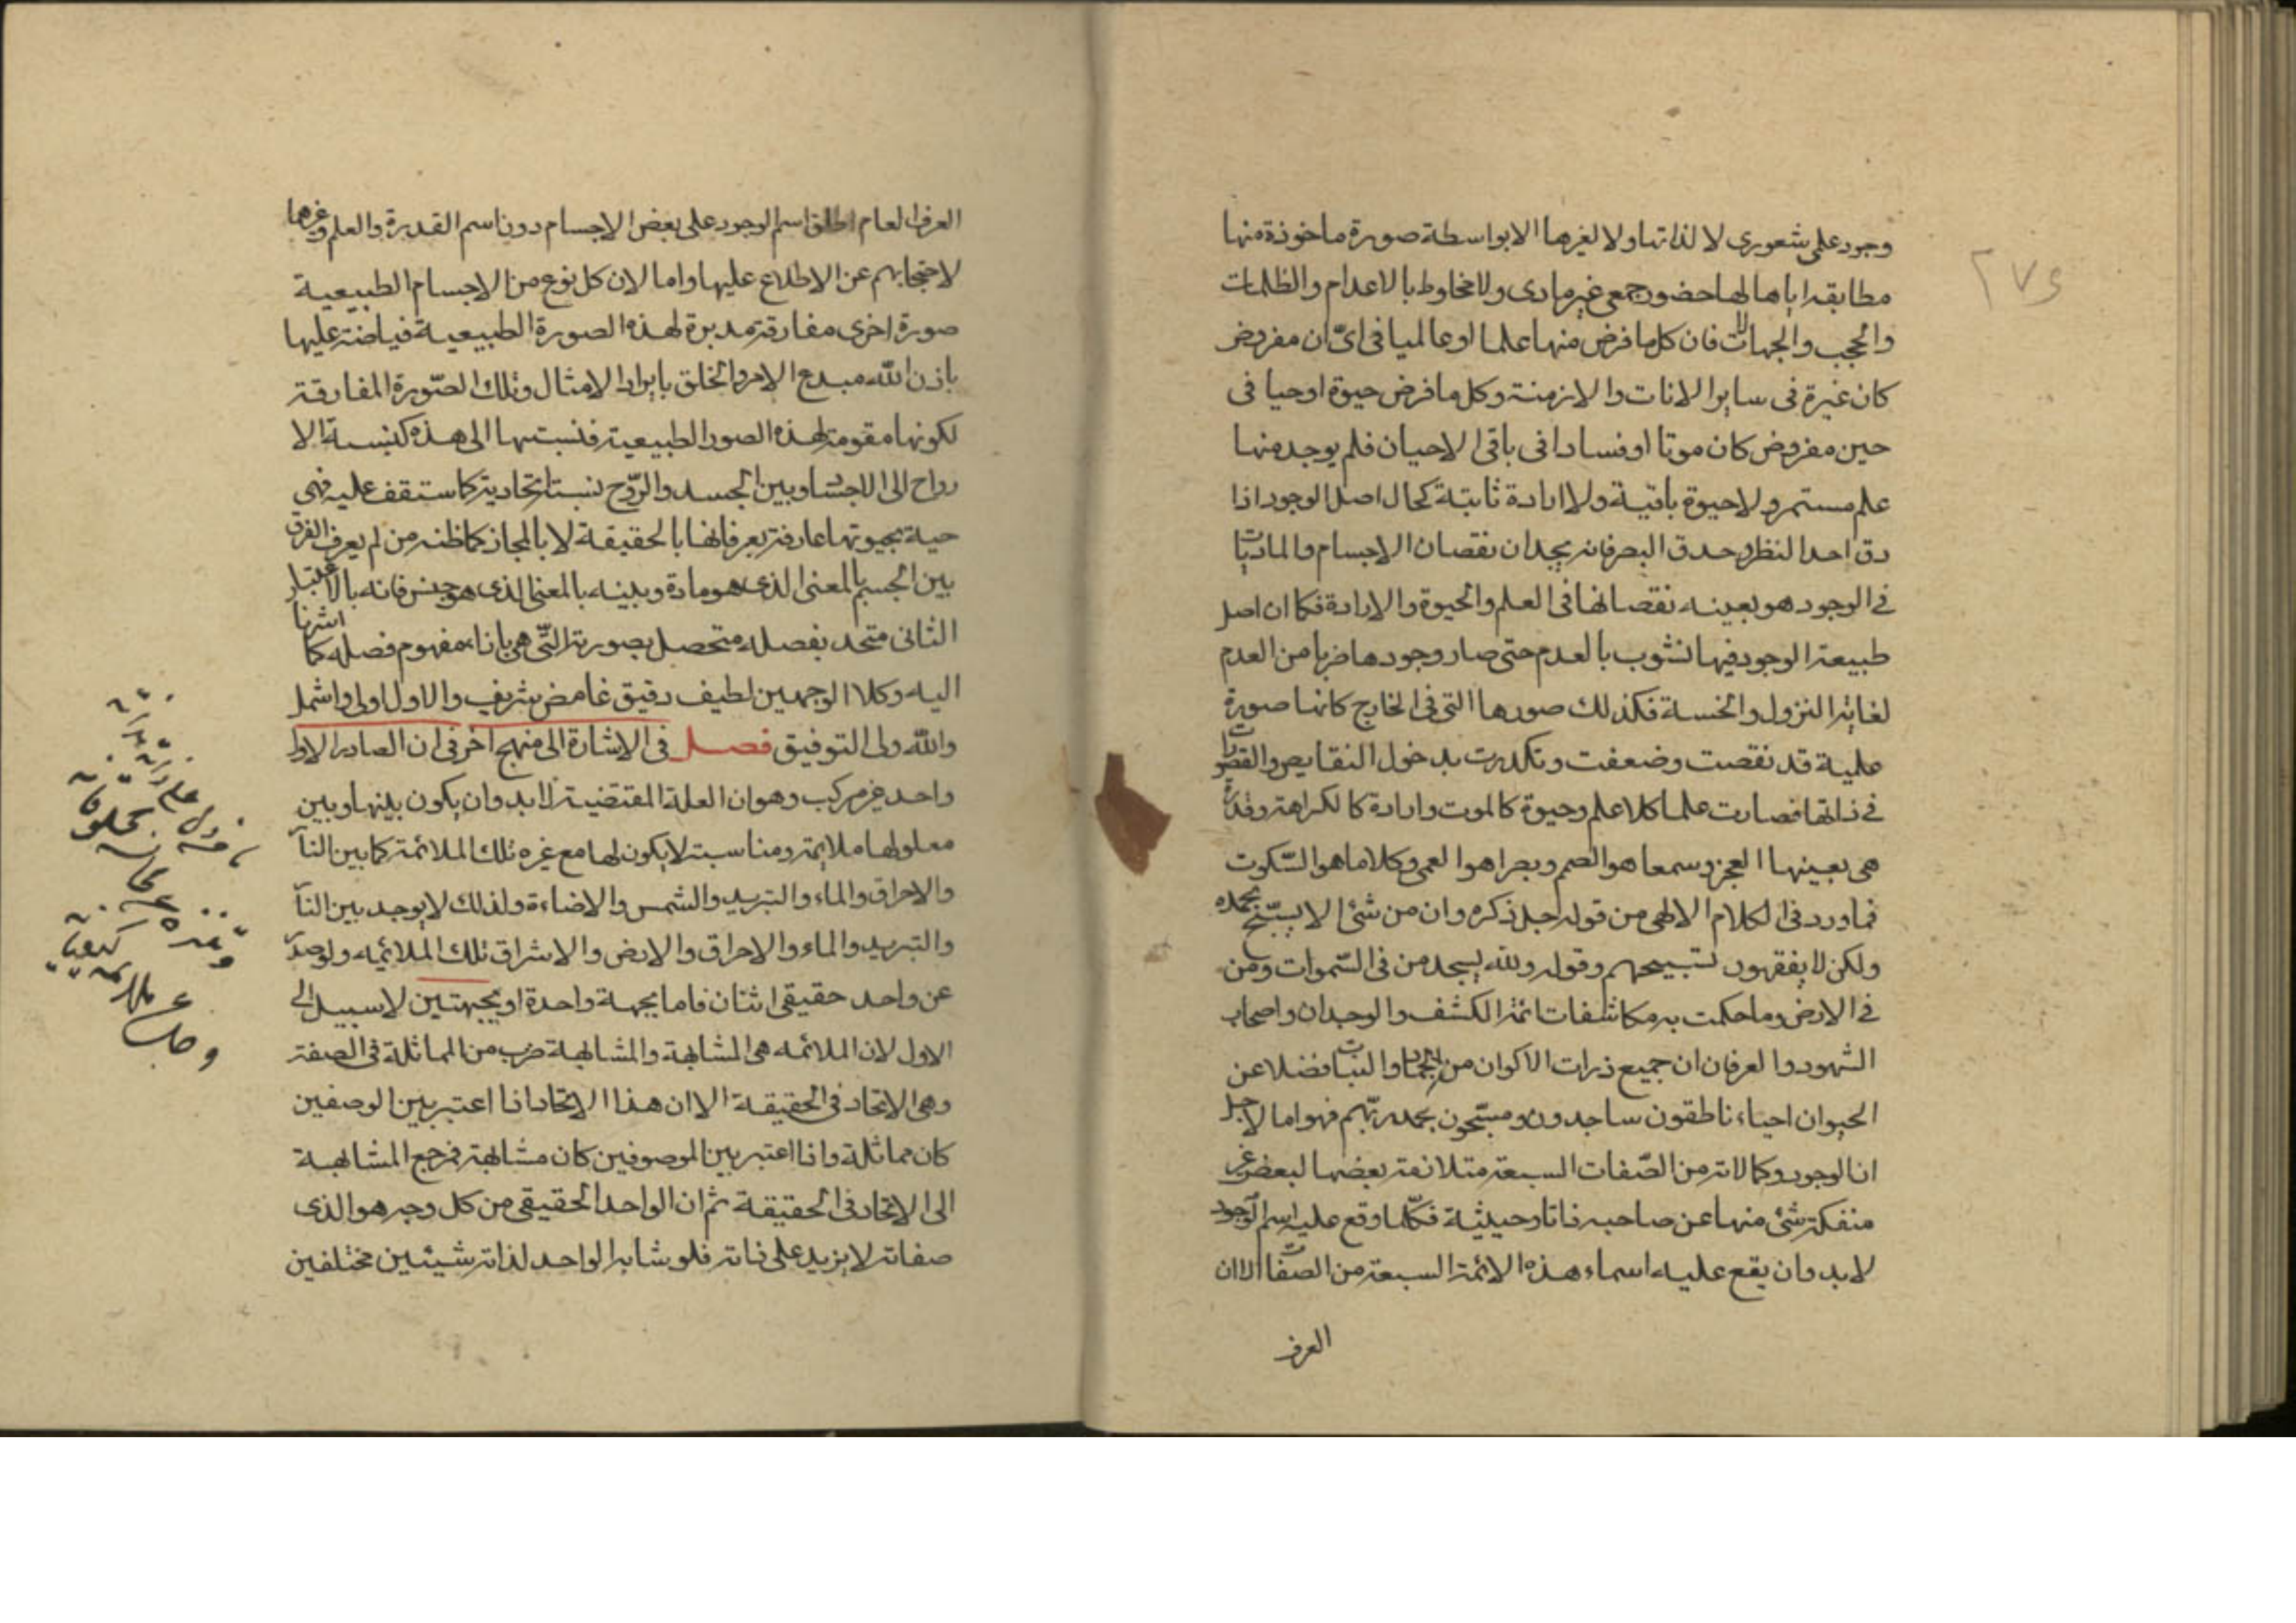 ٢٧٤
وجود على شعورى لا لذاتها ولا لغيرها الا بواسطة صورة ماخوذة منها
مطابقة اياها لها حضور جمعى غير مادى ولا مخلوط بالاعدام والظلمات
والحجب والجهالات فان كل ما فرض منها علما او عالميا فى اىّ ان مفروض
كان غيره فى ساير الانات والازمنة وكل ما فرض حيوة او حيا فى
حين مفروض كان موتا او فسادا فى باقى الاحيان فلم يوجد منها
علم مستمر ولا حيوة باقية ولا ارادة ثابتة كحال اصل الوجود اذا
دق احد النظر وحدق البصر فانه يجد ان نقصان الاجسام والماديات
فى الوجود هو بعينه نقصانها فى العلم والحيوة والارادة فكما ان اصل
طبيعة الوجود فيها نشوب بالعدم حتى صار وجودها ضربا من العدم
لغاية النزول والخسة فكذلك صورها التى فى الخارج كانها صورة
علمية قد نقصت وضعفت وتكدرت بدخول النقايص والقصورات
فى ذاتها فصارت علما كلا علم وحيوة كالموت وارادة كالكراهة وقدرة
هى بعينها العجز وسمعا هو الصم وبصرا هو العمى وكلاما هو السّكوت
فما ورد فى الكلام الالهى من قوله جل ذكره وان من شئ الا يسبّح بحمده
ولكن لا يفقهون تسبيحهم وقوله ولله يسجد من فى السّموات ومن
فى الارض وما حكمت به مكاشفات ائمة الكشف والوجدان واصحاب
الشهود والعرفان ان جميع ذرات الاكوان من الجماد والنبات فضلا عن
الحيوان احياء ناطقون ساجدون ومسبّحون بحمد ربّهم فهو اما لاجل
ان الوجود وكمالاته من الصّفات السبعة متلازمة بعضها لبعض غير
منفكة شئ منها عن صاحبه ذاتا وحيثية فكلّما وقع عليه اسم الوجود
لابد وان يقع عليه اسماء هذه الائمة السبعة من الصفات الا ان
العرف
العرف العام اطلق اسم الوجود على بعض الاجسام دون اسم القدرة والعلم وغيرها
لاحتجابهم عن الاطلاع عليها واما لان كل نوع من الاجسام الطبيعية
صورة اخرى مفارقة مدبرة لهذه الصورة الطبيعية فياضة عليها
باذن الله مبدع الامر والخلق بايراد الامثال وتلك الصّورة المفارقة
لكونها مقومة لهذه الصور الطبيعية فنسبتها الى هذه كنسبة الا
رواح الى الاجساد وبين الجسد والرّوح نسبة اتحادية كما ستقف عليه فهى
حية بحيوتها عارفة بعرفانها بالحقيقة لا بالمجاز كما ظنه من لم يعرف الفرق
بين الجسم بالمعنى الذى هو مادة وبينه بالمعنى الذى هو جنس فانه بالاعتبار
الثانى متحد بفصله متحصل بصورته التّى هى بازاء مفهوم فصله كما اشرنا
اليه وكلا الوجهين لطيف دقيق غامض شريف والاول اولى واشمل
والله ولى التوفيق فصل فى الاشارة الى منهج اخر فى ان الصادر الاول
واحد غير مركب وهو ان العلة المقتضية لابد وان يكون بينها وبين
معلولها ملايمة ومناسبة لا يكون لها مع غيره تلك الملائمة كما بين النار
والاحراق والماء والتبريد والشمس والاضاءة ولذلك لا يوجد بين النار
والتبريد والماء والاحراق والارض والاشراق تلك الملائمه ولو صدر
عن واحد حقيقى اثنان فاما بجهة واحدة او بجهتين لا سبيل الى
الاول لان الملائمه هى المشابهة والمشابهة ضرب من المماثلة فى الصفة
وهى الاتحاد فى الحقيقة الا ان هذا الاتحاد اذا اعتبر بين الوصفين
كان مماثلة واذا اعتبر بين الموصوفين كان مشابهة فمرجع المشابهة
الى الاتحاد فى الحقيقة ثم ان الواحد الحقيقى من كل وجه هو الذى
صفاته لا يزيد على ذاته فلو شابه الواحد لذاته شيئين مختلفين